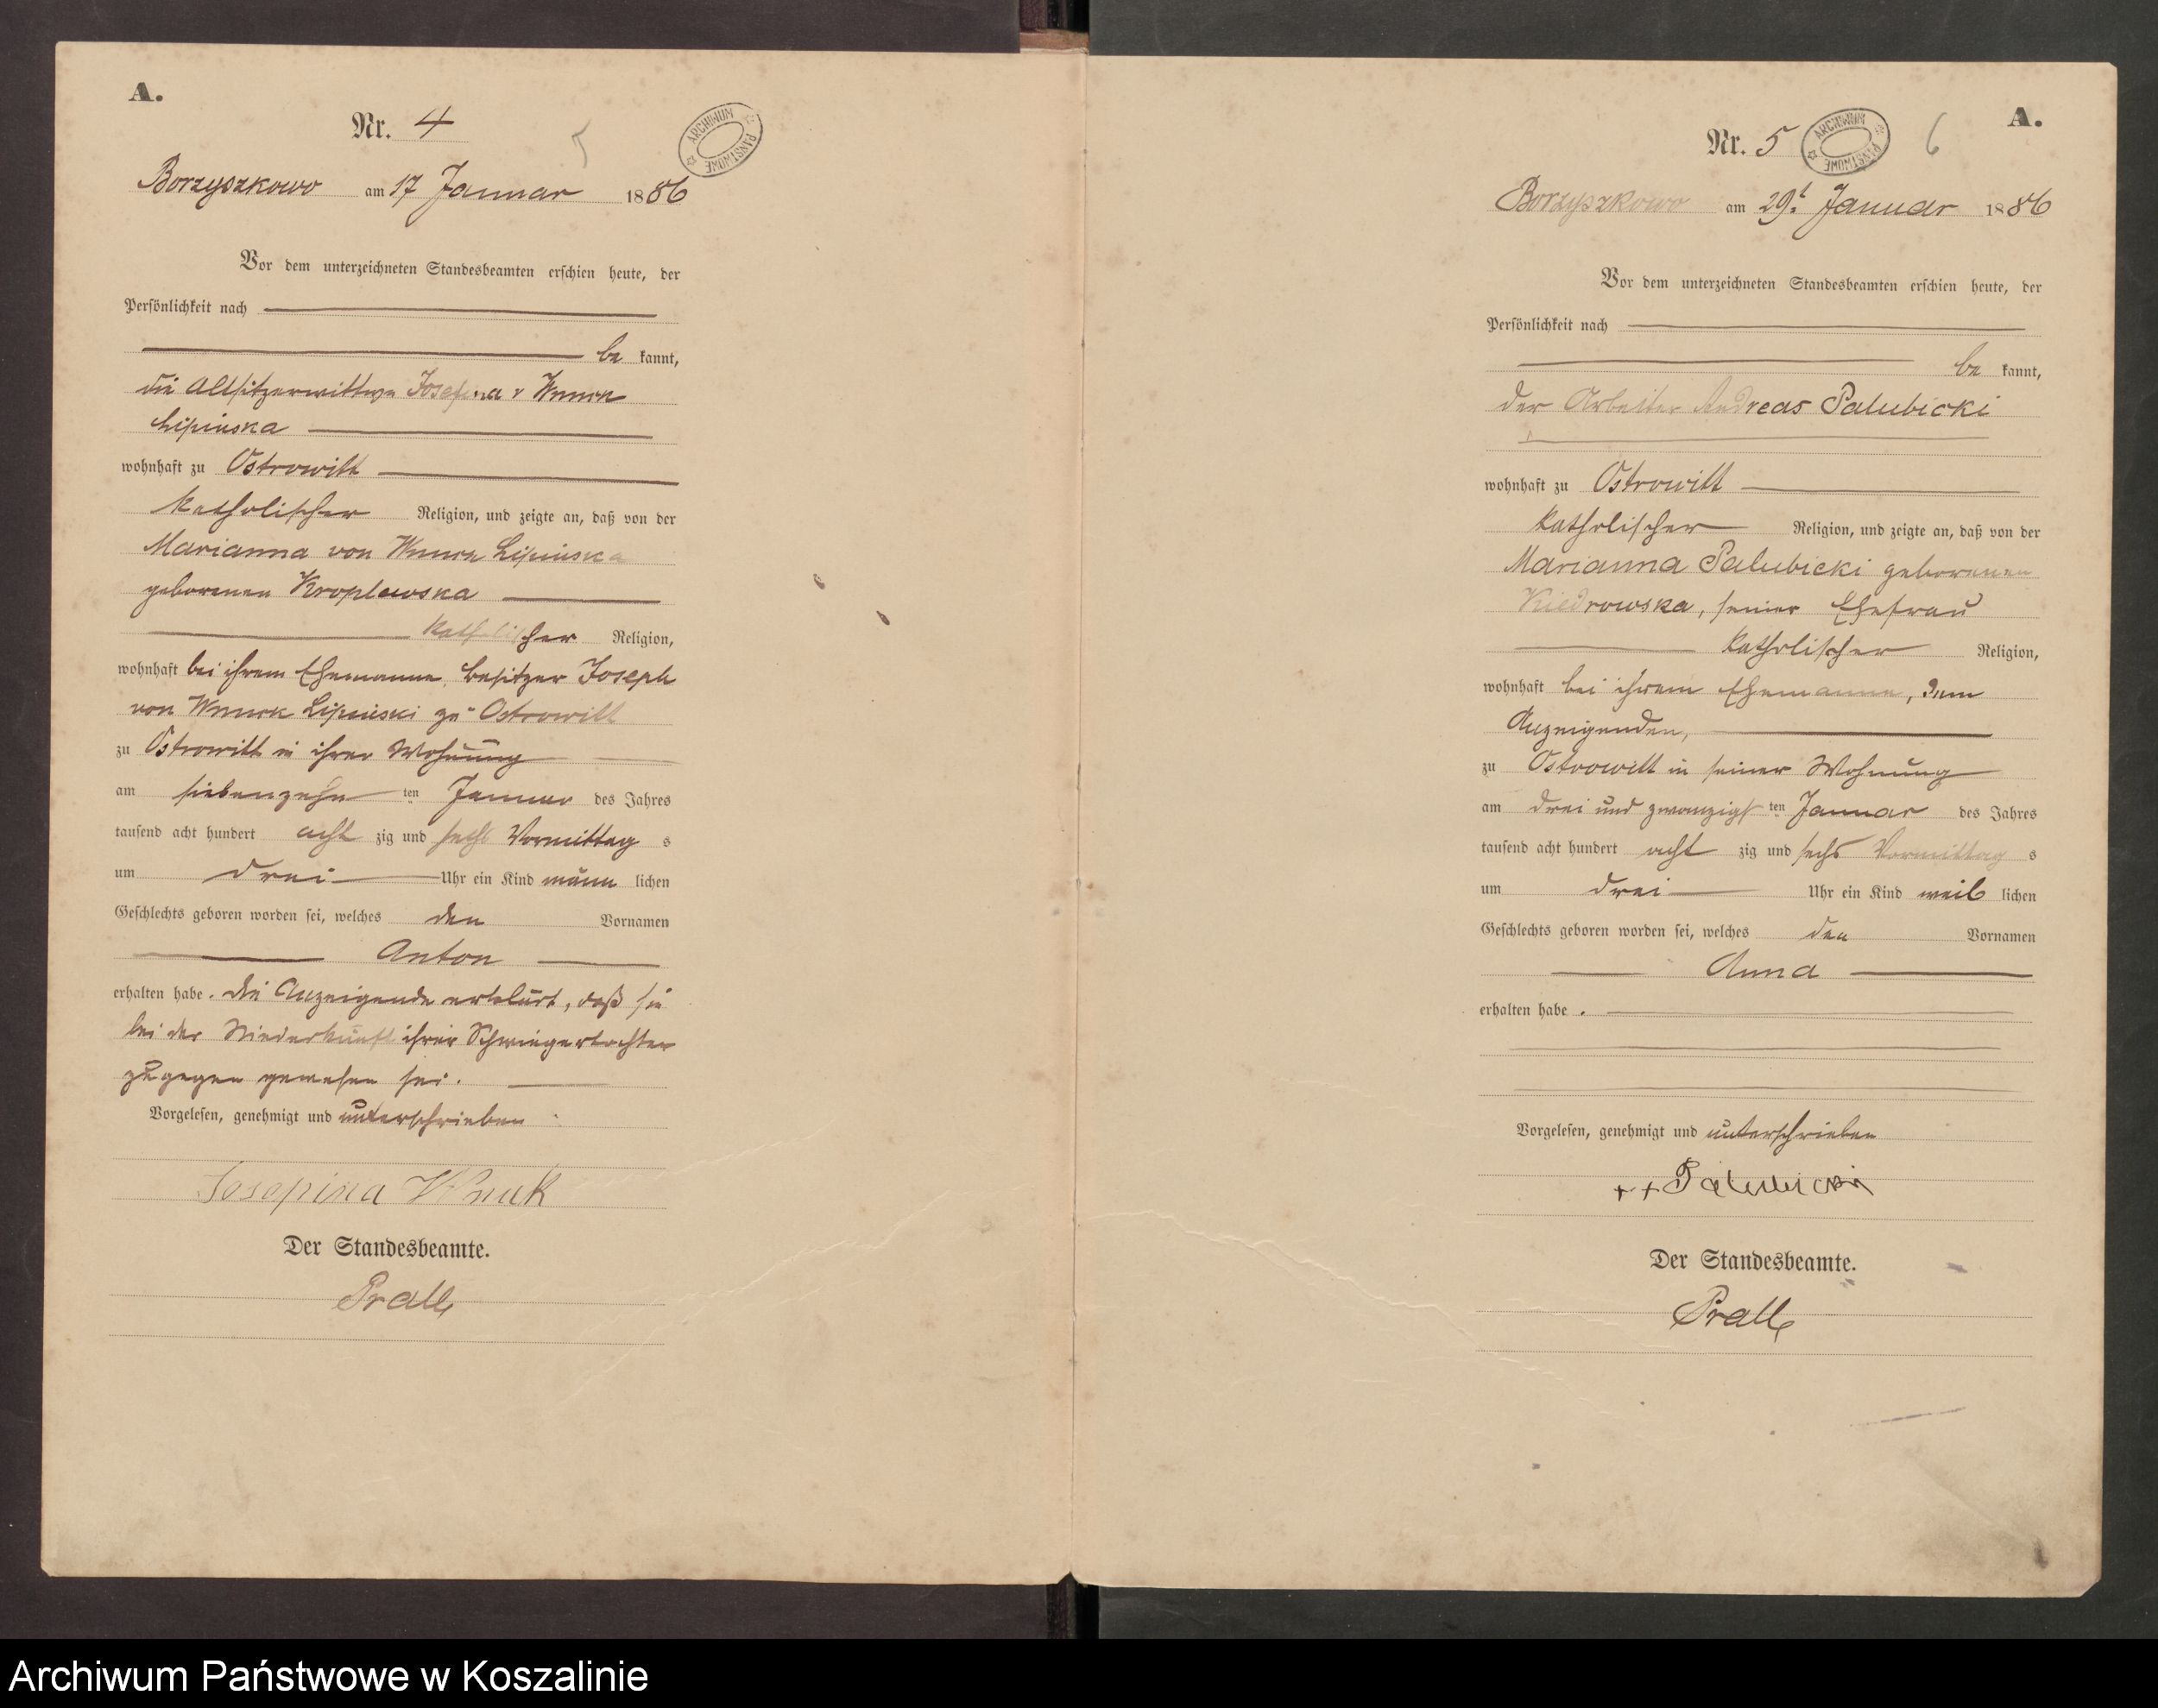 A.
Nr. 4
5
ARCHIWUM PAŃSTWOWE
Borzyszkowo am 17 Januar 1886
Vor dem unterzeichneten Standesbeamten erschien heute, der
Persönlichkeit nach
be kannt,
die Altsitzerwittwe Josefina v Wnuck
Lipinska
wohnhaft zu Ostrowitt
katholischer Religion, und zeigte an, daß von der
Marianna von Wnuck Lipinska
geborenen Kroplewska
katholischer Religion,
wohnhaft bei ihrem Ehemanne, Besitzer Joseph
von Wnuck Lipinski zu Ostrowitt
zu Ostrowitt in ihrer Wohnung
am siebenzehn ten Januar des Jahres
tausend acht hundert acht zig und sechs Vormittag s
um drei Uhr ein Kind männ lichen
Geschlechts geboren worden sei, welches den Vornamen
Anton
erhalten habe. Die Anzeigende erklärt, daß sie
bei der Niederkunft ihrer Schwiegertochter
zugegen gewesen sei.
Vorgelesen, genehmigt und unterschrieben
Josepina Wnuk
Der Standesbeamte.
Prall
A.
Nr. 5
ARCHIWUM PAŃSTWOWE
6
Borzyszkowo am 29t Januar 1886
Vor dem unterzeichneten Standesbeamten erschien heute, der
Persönlichkeit nach
be kannt,
der Arbeiter Andreas Palubicki
wohnhaft zu Ostrowitt
katholischer Religion, und zeigte an, daß von der
Marianna Palubicki geborenen
Kiedrowska, seiner Ehefrau
katholischer Religion,
wohnhaft bei ihrem Ehemanne, dem
Anzeigenden,
zu Ostrowitt in seiner Wohnung
am drei und zwanzigs ten Januar des Jahres
tausend acht hundert acht zig und sechs Vormittag s
um drei Uhr ein Kind weib lichen
Geschlechts geboren worden sei, welches den Vornamen
Anna
erhalten habe.
Vorgelesen, genehmigt und unterschrieben
++ Palubicki
Der Standesbeamte.
Prall
Archiwum Państwowe w Koszalinie